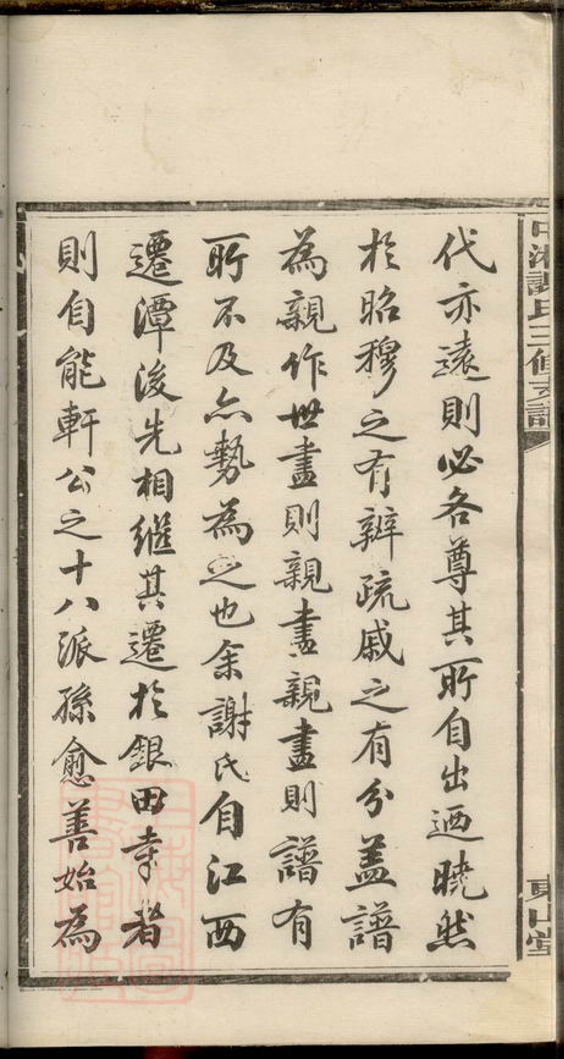 中湘謝氏三修支譜
東山堂
代亦遠則必各尊其所自出迺曉然
於昭穆之有辨疏戚之有分蓋譜
為親作世盡則親盡親盡則譜有
所不及亦勢為之也余謝氏自江西
遷潭後先相繼其遷於銀田寺者
則自能軒公之十八派孫愈善始為